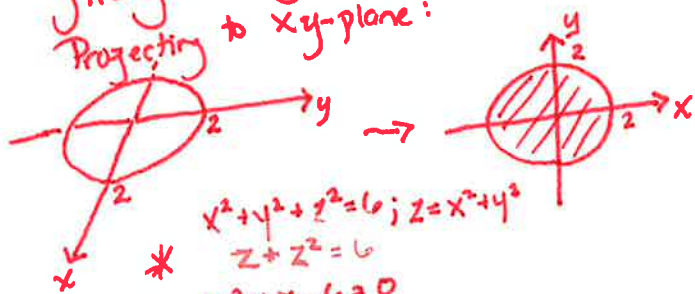 Projecting to xy-plane:
y
2
2
x
→
y
2
2
x
x² + y² + z² = 6 ; z = x² + y²
* z + z² = 6